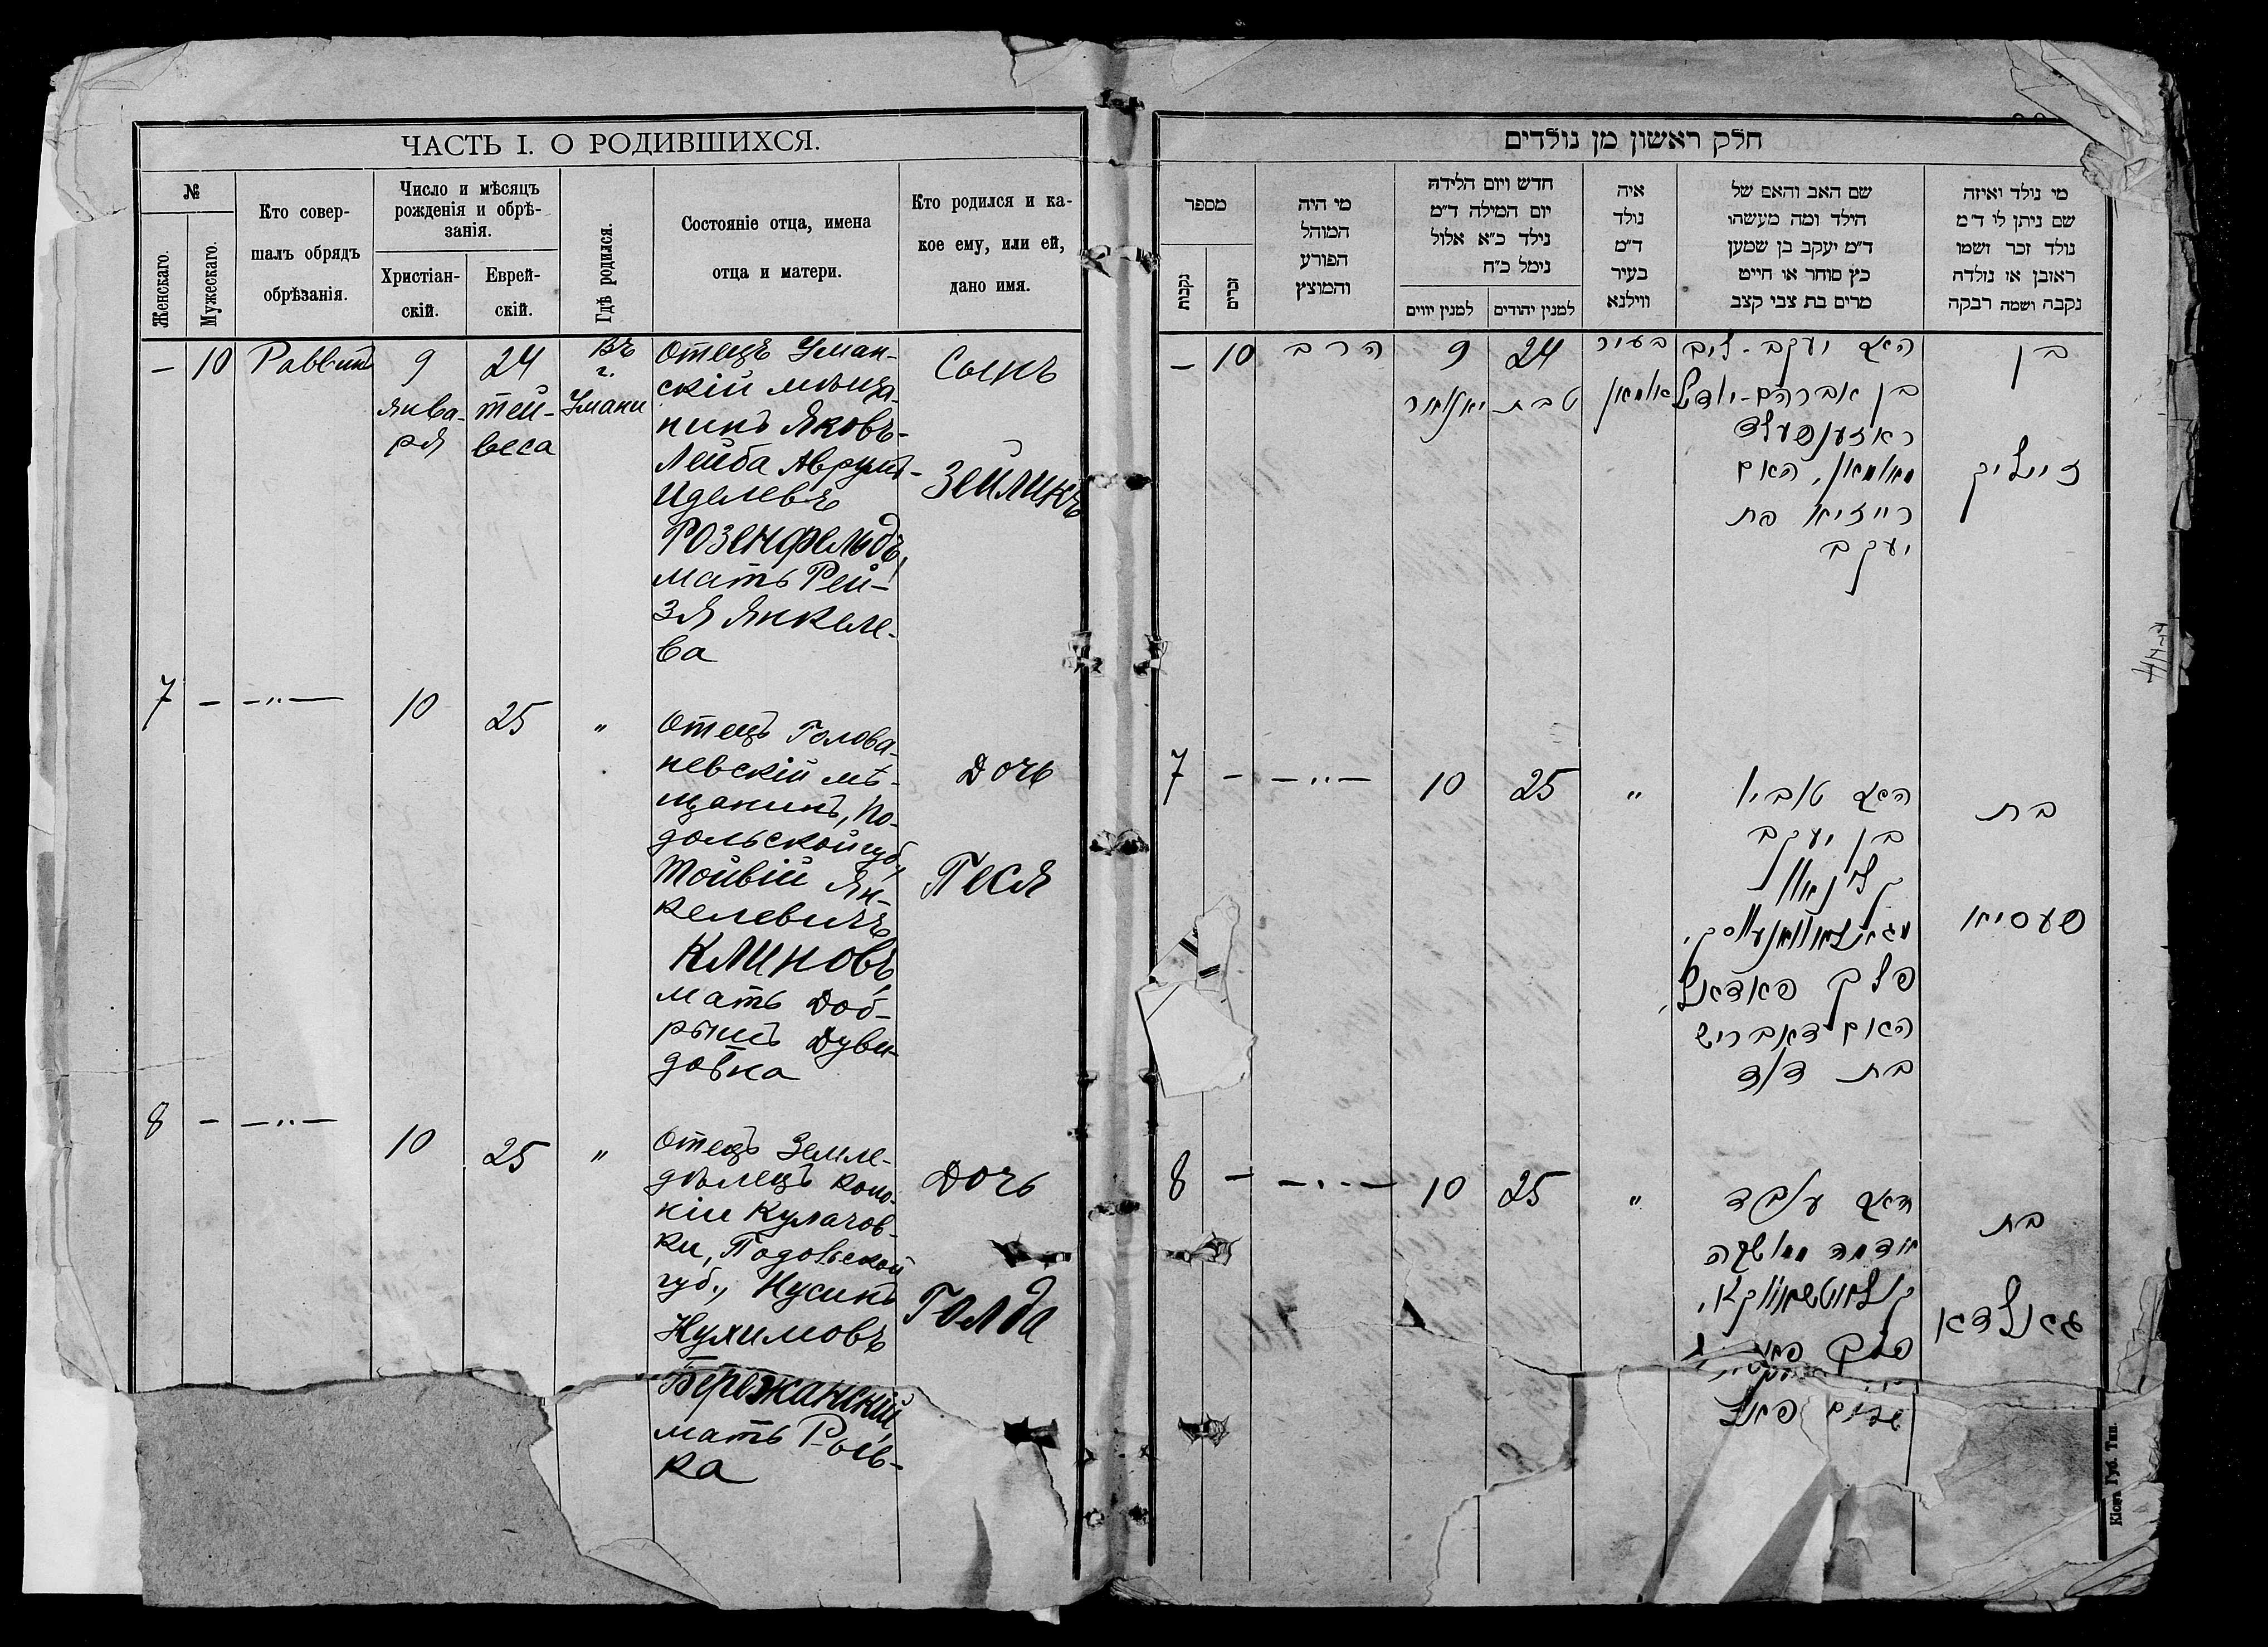 ЧАСТЬ I. О РОДИВШИХСЯ.
№
Женскаго.
Мужескаго.
Кто совер-
шалъ обрядъ
обрѣзанія.
Число и мѣсяцъ
рожденія и обрѣ-
занія.
Христіан-
скій.
Еврей-
скій.
Гдѣ родился.
Состояніе отца, имена
отца и матери.
Кто родился и ка-
кое ему, или ей,
дано имя.
— 10 Раввинъ
9
января
24
тей-
веса
Въ
г.
Умани
Отецъ Уман-
скій мѣща-
нинъ Яковъ-
Лейба Аврумъ-
Иделевъ
Розенфельдъ,
мать Рей-
зя Янкеле-
ва
Сынъ
Зейликъ
7 — —"— 10 25 "
Отецъ Голова-
невскій мѣ-
щанинъ, По-
дольской губ.,
Тойвій Ян-
келевичъ
Клиновъ,
мать Доб-
рышъ Дуви-
довна
Дочь
Песя
8 — —"— 10 25 "
Отецъ Земле-
дѣлецъ коло-
ніи Кулачов-
ки, Подольской
губ., Нусинъ
Нухимовъ
Бережанскій,
мать Рыв-
ка
Дочь
Голда
חלק ראשון מן נולדים
מספר
נקבות
זכרים
מי היה
המוהל
הפורע
והמוצץ
חדש ויום הלידה
יום המילה ד״מ
נילד כ״א אלול
נימל כ״ח
למנין יווים
למנין יהודים
איה
נולד
ד״מ
בעיר
ווילנא
שם האב והאם של
הילד ומה מעשהו
ד״מ יעקב בן שמען
כץ סוחר או חייט
מרים בת צבי קצב
מי נולד ואיזה
שם ניתן לי ד״מ
נולד זכר ושמו
ראובן או נולדה
נקבה ושמה רבקה
— 10 הרב
9
יאנואר
24
טבת
בעיר
אומאן
האב יעקב-ליב
בן אברהם-יודל
ראזענפעלד
מאומאן, האם
רייזיא בת
יעקב
בן
זייליק
7 — —"— 10 25 "
האב טוביו
בן יעקב
קלינאוו
פלך פאדאל,
האם דאבריש
בת דוד
בת
פעסיא
8 — —"— 10 25 "
האב עובד
אדמה
בת
גאלדא
Кіевъ Губ. Тип.